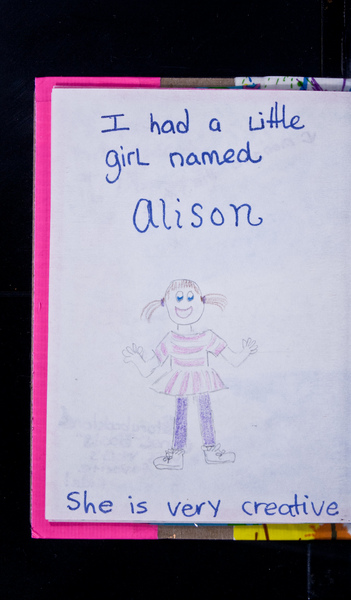 I had a little
girl named
Alison
She is very creative